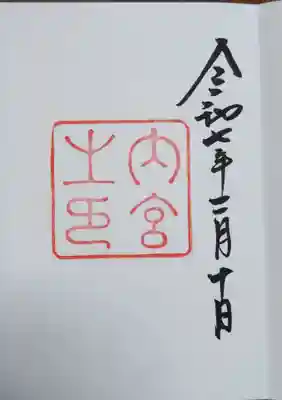 令和七年二月十日
内宮
之印